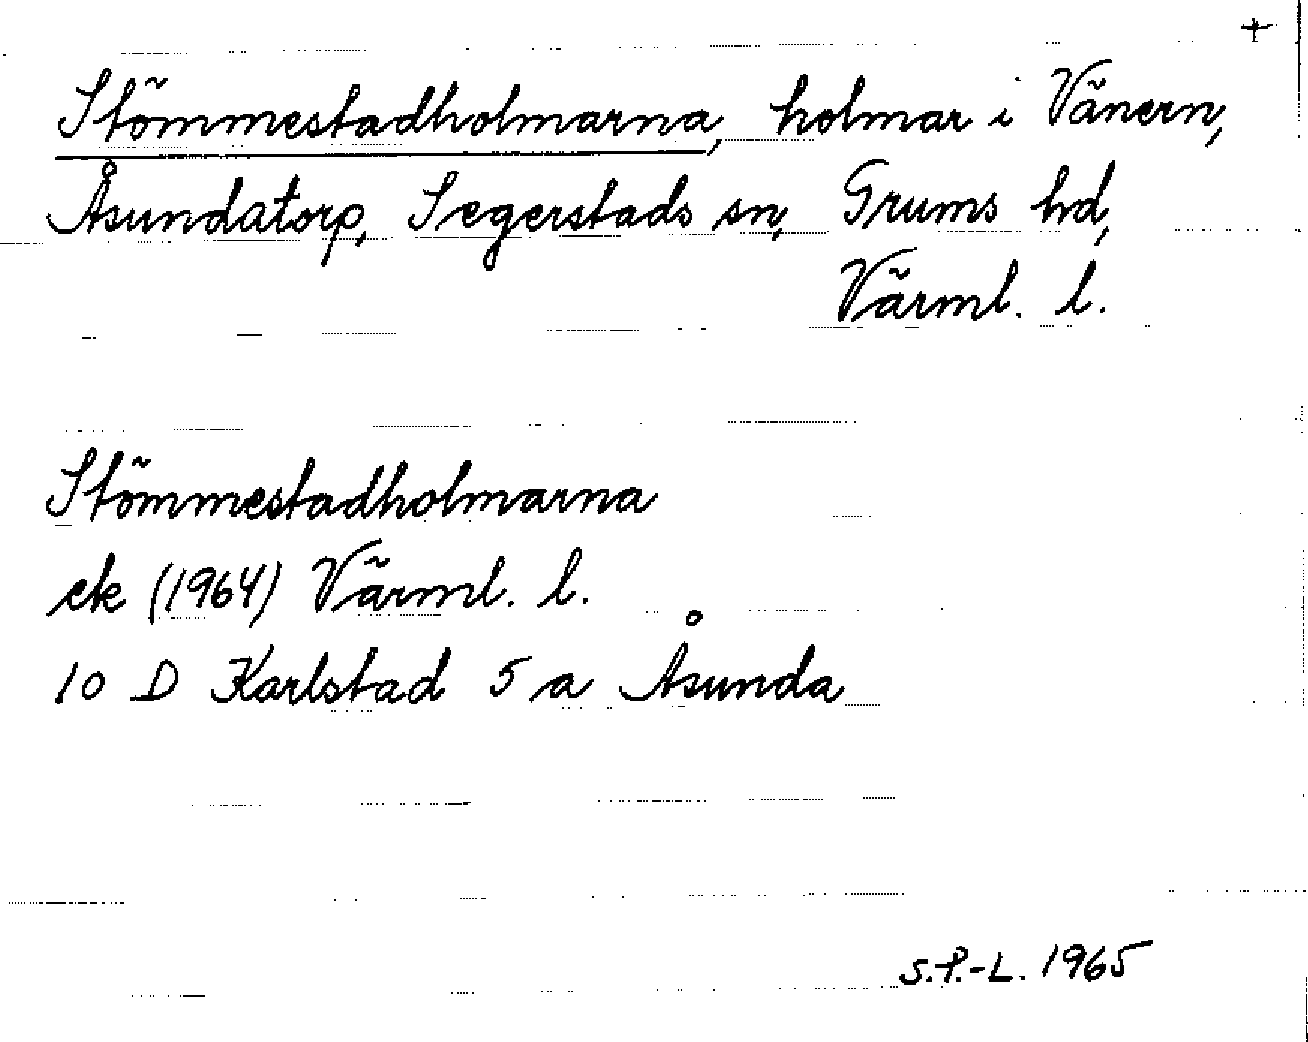 +
Stömmestadholmarna, holmar i Vänern,
Åsundatorp, Segerstads sn, Grums hd,
Värml. l.
Stömmestadholmarna
ek (1964) Värml. l.
10 D Karlstad 5 a Åsunda
S.P.-L. 1965